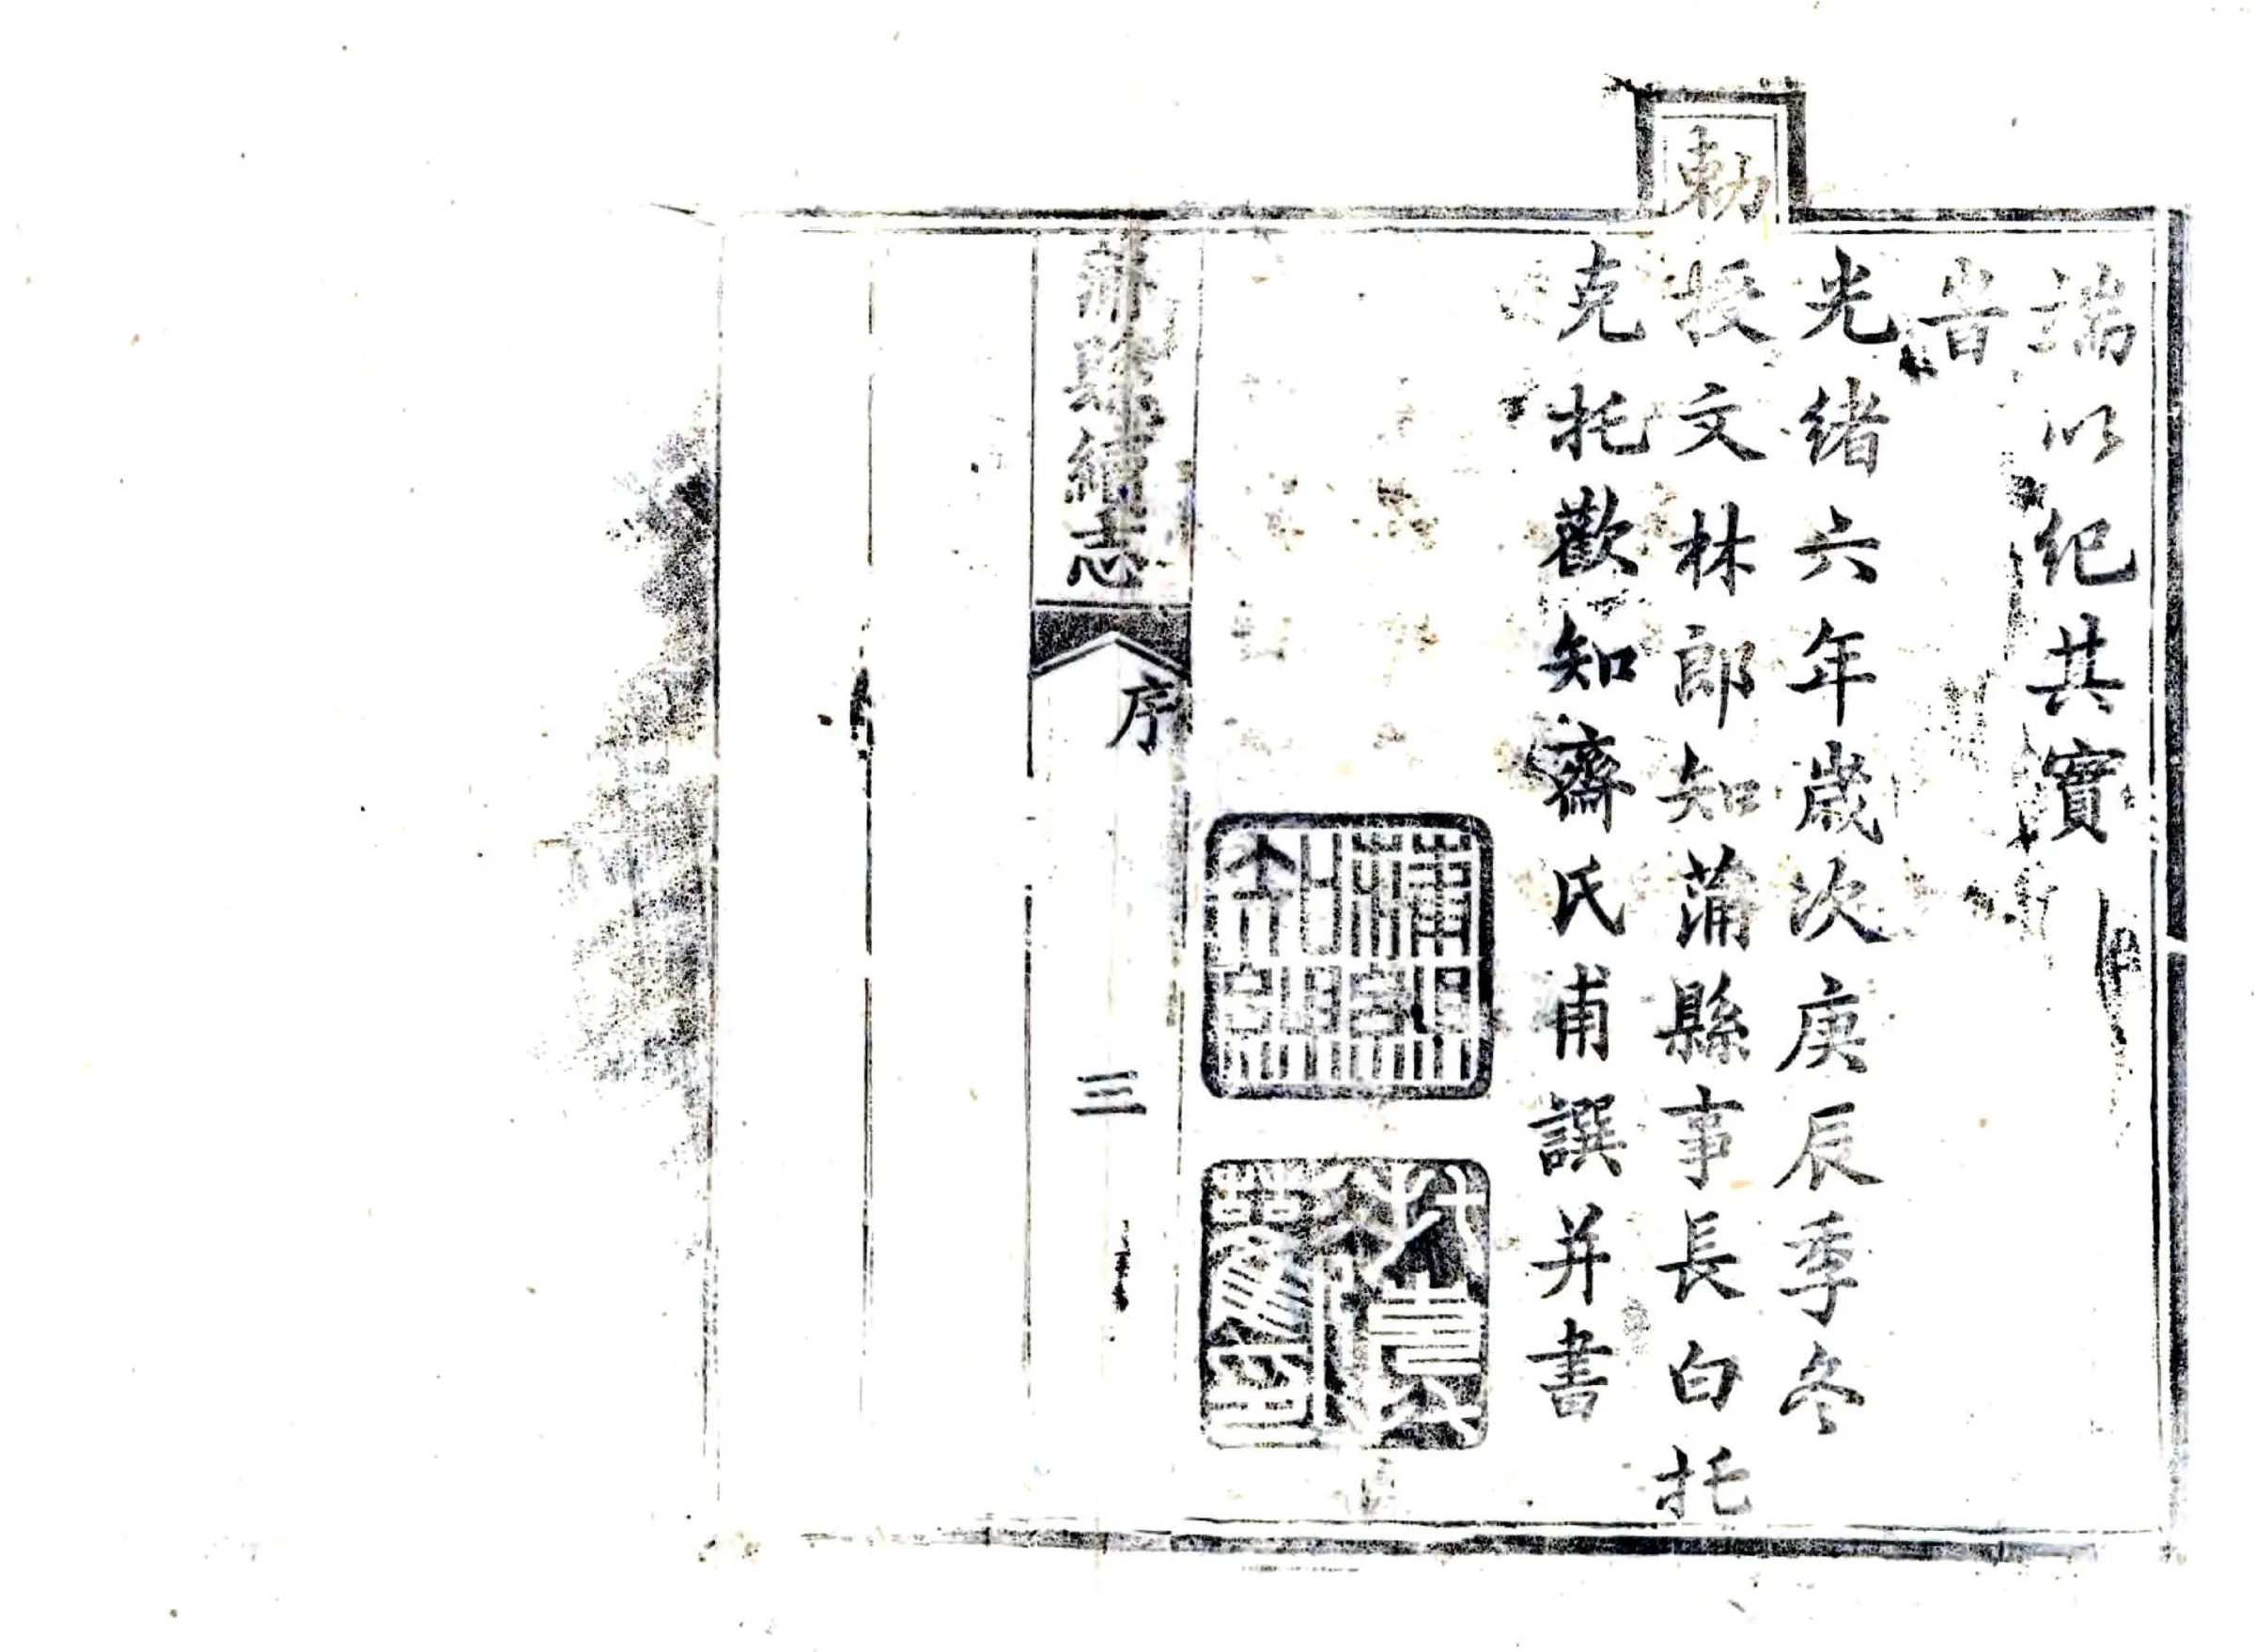 端以紀其實
旹
光緒六年歲次庚辰季冬
勅授文林郎知蒲縣事長白托
克托歡知齋氏甫譔并書
蒲縣續志
序
三